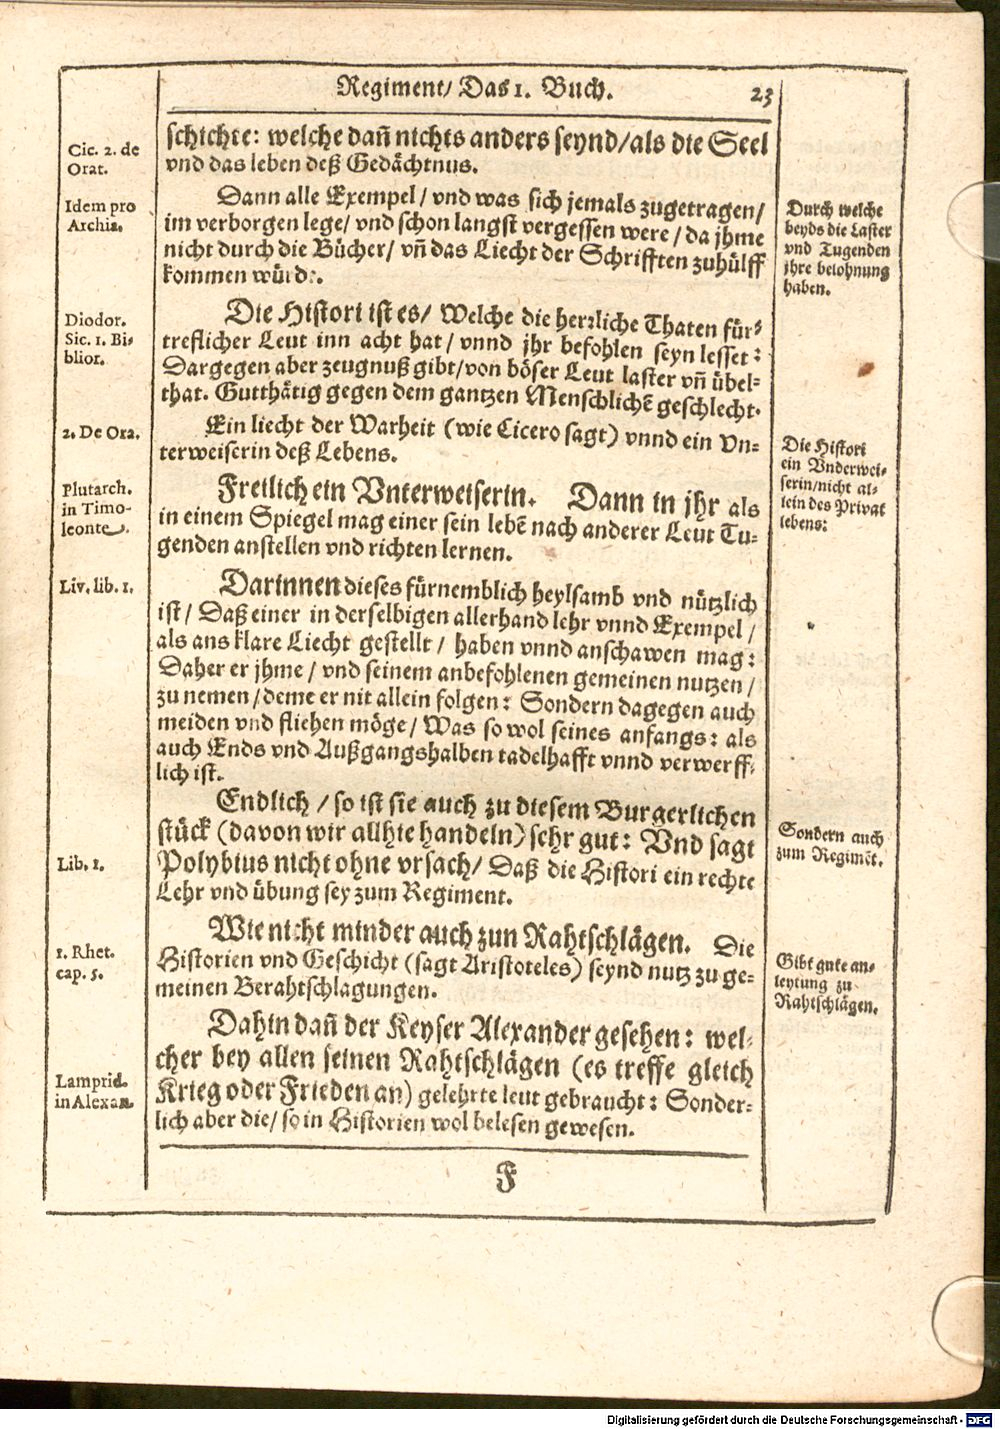 Regiment/ Das 1. Buch. 23
Cic. 2. de
Orat.
schichte: welche dañ nichts anders seynd/als die Seel
vnd das leben deß Gedächtnus.
Idem pro
Archia.
Dann alle Exempel/ vnd was sich jemals zugetragen/
im verborgen lege/ vnd schon langst vergessen were/ da jhme
nicht durch die Bücher/ vñ das Liecht der Schrifften zuhülff
kommen würde.
Durch welche
beyds die Laster
vnd Tugenden
jhre belohnung
haben.
Diodor.
Sic. 1. Bi-
blior.
Die Histori ist es/ Welche die herrliche Thaten für-
treflicher Leut inn acht hat/ vnnd jhr befohlen seyn lesset:
Dargegen aber zeugnuß gibt/von böser Leut laster vñ übel-
that. Gutthätig gegen dem gantzen Menschlichẽ geschlecht.
2. De Ora.
Ein liecht der Warheit (wie Cicero sagt) vnnd ein Vn-
terweiserin deß Lebens.
Die Histori
ein Vnderwei-
serin/nicht al-
lein des Privat
lebens:
Plutarch.
in Timo-
leonte.
Freilich ein Vnterweiserin. Dann in jhr als
in einem Spiegel mag einer sein lebẽ nach anderer Leut Tu-
genden anstellen vnd richten lernen.
Liv. lib. 1.
Darinnen dieses fürnemblich heylsamb vnd nützlich
ist/ Daß einer in derselbigen allerhand lehr vnnd Exempel/
als ans klare Liecht gestellt/ haben vnnd anschawen mag:
Daher er jhme/ vnd seinem anbefohlenen gemeinen nutzen/
zu nemen/deme er nit allein folgen: Sondern dagegen auch
meiden vnd fliehen möge/ Was so wol seines anfangs: als
auch Ends vnd Außgangshalben tadelhafft vnnd verwerff-
lich ist.
Endlich/ so ist sie auch zu diesem Burgerlichen
stück (davon wir allhie handeln) sehr gut: Vnd sagt
Lib. 1.
Polybius nicht ohne vrsach/ Daß die Histori ein rechte
Lehr vnd übung sey zum Regiment.
Sondern auch
zum Regimẽt.
1. Rhet.
cap. 5.
Wie nicht minder auch zun Rahtschlägen. Die
Historien vnd Geschicht (sagt Aristoteles) seynd nutz zu ge-
meinen Berahtschlagungen.
Gibt gute an-
leytung zu
Rahtschlägen.
Lamprid.
in Alexan.
Dahin dañ der Keyser Alexander gesehen: wel-
cher bey allen seinen Rahtschlägen (es treffe gleich
Krieg oder Frieden an) gelehrte leut gebraucht: Sonder-
lich aber die/ so in Historien wol belesen gewesen.
F
Digitalisierung gefördert durch die Deutsche Forschungsgemeinschaft - DFG